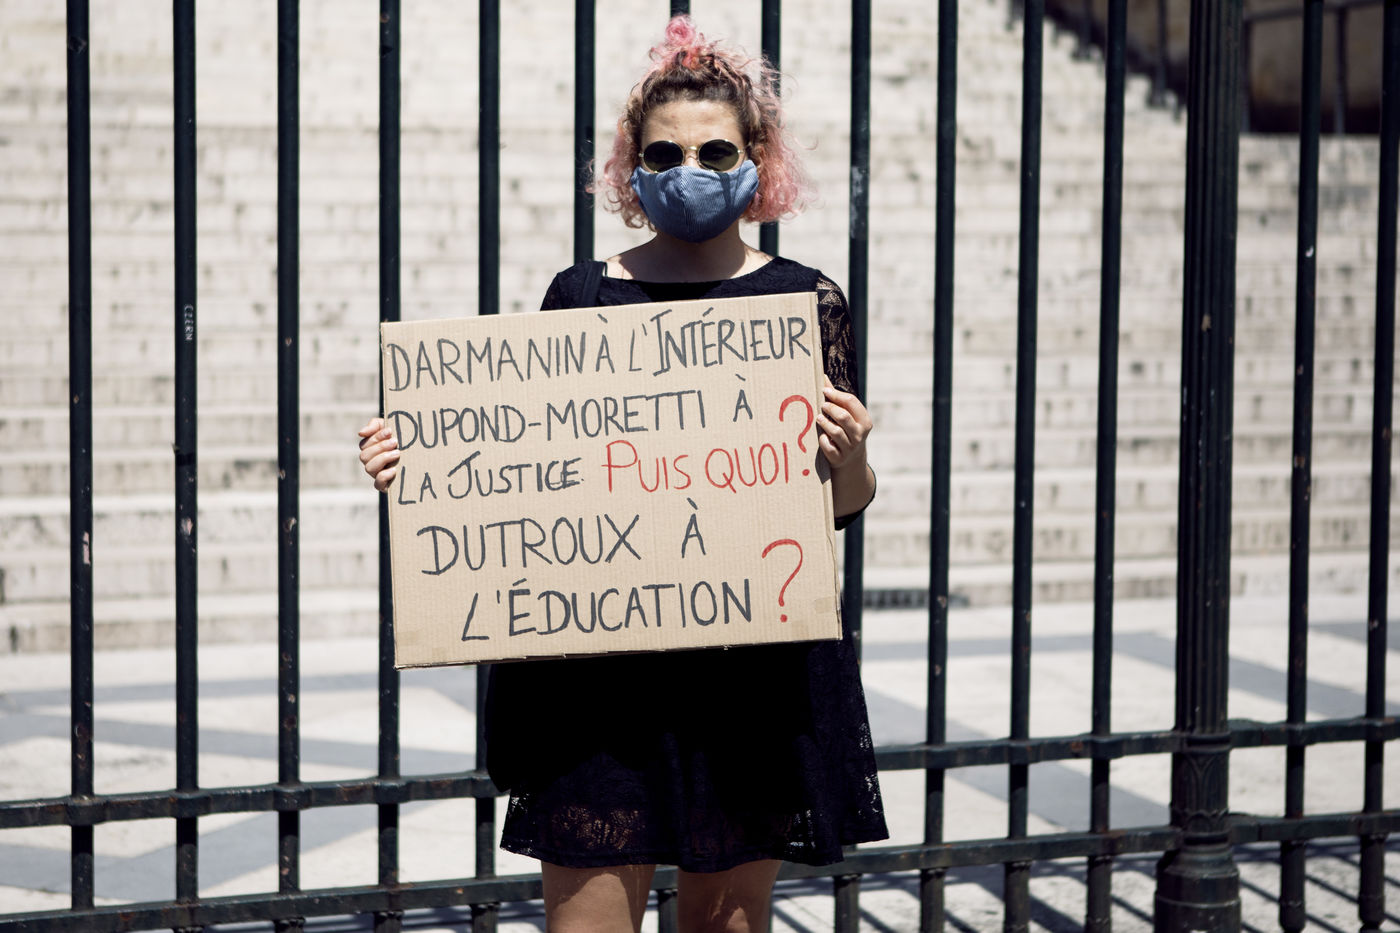 DARMANIN À L'INTÉRIEUR
DUPOND-MORETTI À
LA JUSTICE. PUIS QUOI?
DUTROUX À
L'ÉDUCATION?